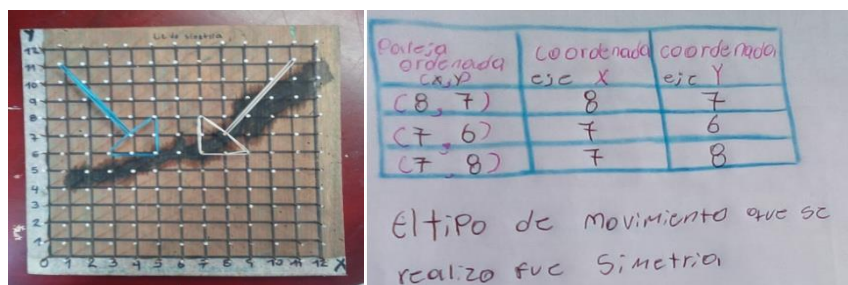 Y
12
11
10
9
8
7
6
5
4
3
2
1
0 1 2 3 4 5 6 7 8 9 10 11 12 X
Pareja ordenada (x,y) coordenada eje X coordenada eje Y
(8, 7) 8 7
(7, 6) 7 6
(7, 8) 7 8
El tipo de movimiento que se
realizo fue simetria